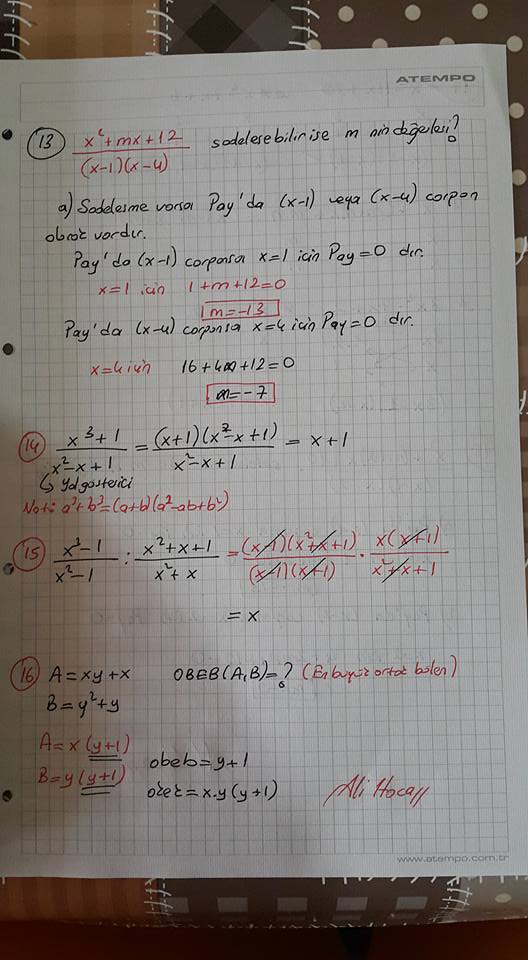 ATEMPO
13 x²+mx+12 / (x-1)(x-4) sadeleşebilir ise m nin değerleri?
a) Sadeleşme varsa Pay'da (x-1) veya (x-4) çarpan
olarak vardır.
Pay'da (x-1) çarpansa x=1 için Pay=0 dır.
x=1 için 1+m+12=0
m=-13
Pay'da (x-4) çarpansa x=4 için Pay=0 dır.
x=4 için 16+4m+12=0
m=-7
14 x³+1 / x²-x+1 = (x+1)(x²-x+1) / x²-x+1 = x+1
↳ Yol gösterici
Not: a³+b³=(a+b)(a²-ab+b²)
15 x³-1 / x²-1 : x²+x+1 / x²+x = (x-1)(x²+x+1) / (x-1)(x+1) · x(x+1) / x²+x+1
= x
16 A=xy+x OBEB(A,B)=? (En büyük ortak bölen)
B=y²+y
A=x(y+1)
obeb=y+1
B=y(y+1)
okek=x.y(y+1)
Ali Hoca
www.atempo.com.tr